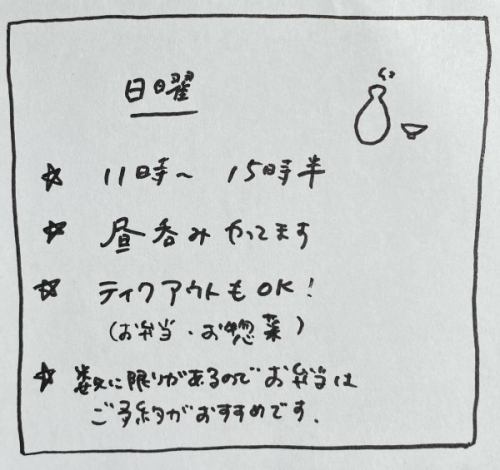 日曜
☆ 11時〜 15時半
☆ 昼呑みやってます
☆ テイクアウトもOK!
(お弁当・お惣菜)
☆ 数に限りがあるのでお弁当は
ご予約がおすすめです.